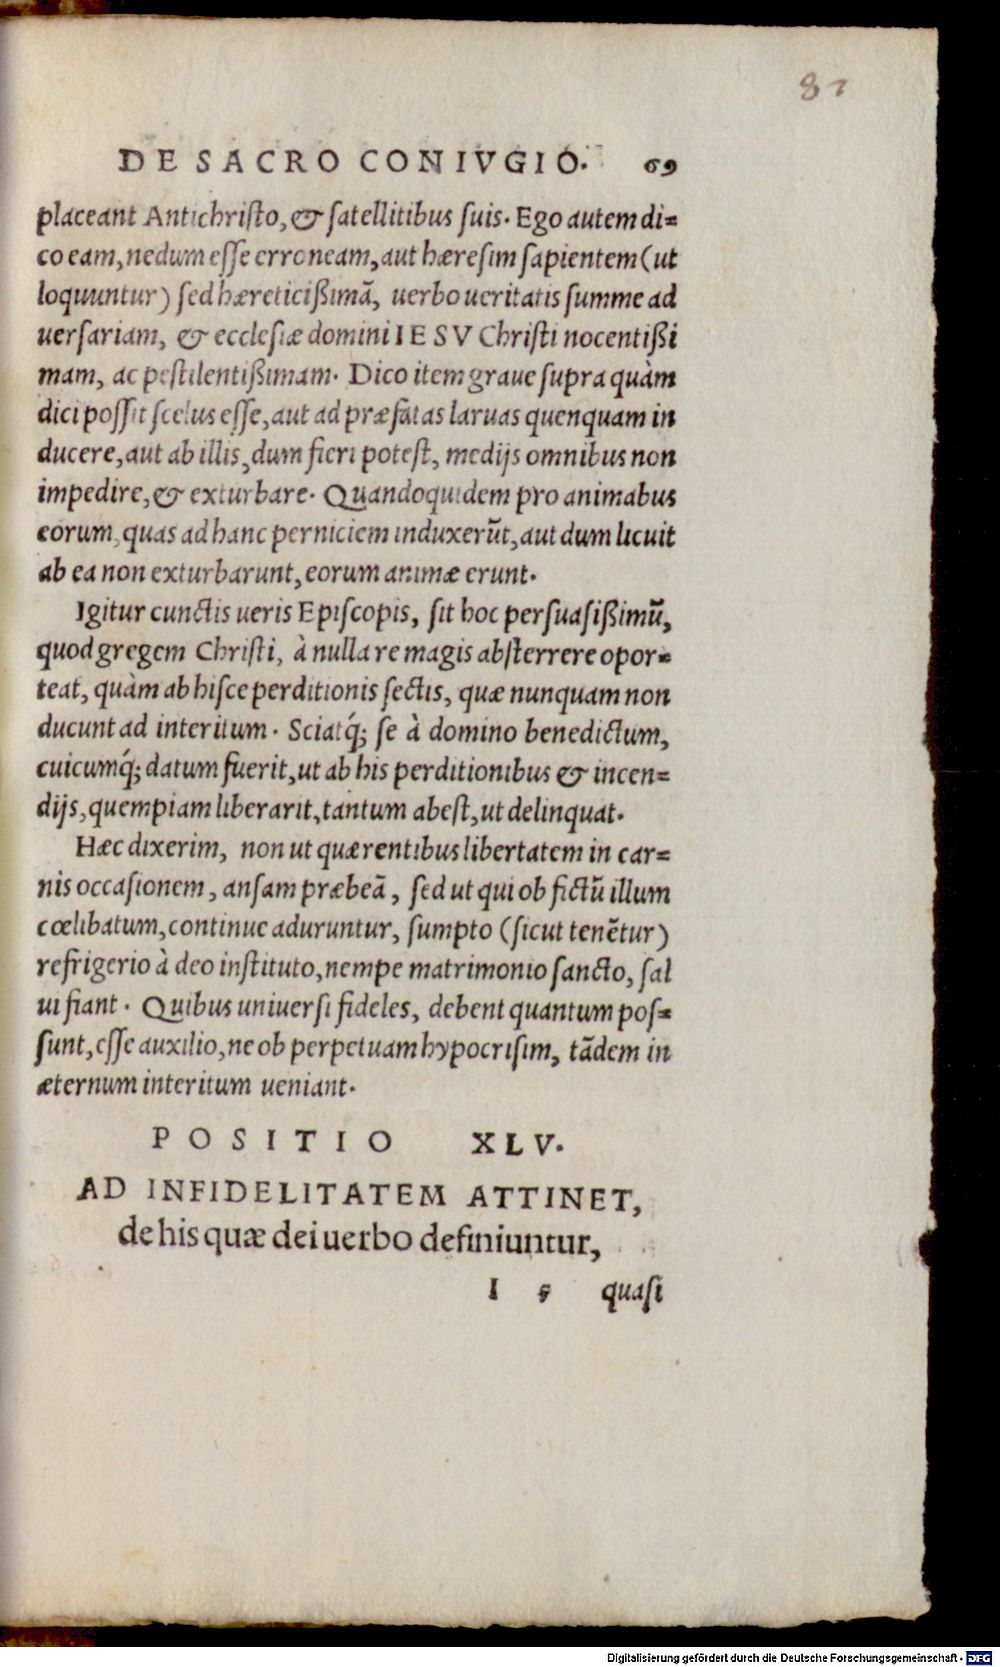 87
DE SACRO CONIVGIO. 69
placeant Antichristo, & satellitibus suis. Ego autem di=
co eam, nedum esse erroneam, aut hæresim sapientem (ut
loquuntur) sed hæreticißimã, uerbo ueritatis summe ad
uersariam, & ecclesiæ domini IESV Christi nocentißi
mam, ac pestilentißimam. Dico item graue supra quàm
dici possit scelus esse, aut ad præfatas laruas quenquam in
ducere, aut ab illis, dum fieri potest, medijs omnibus non
impedire, & exturbare. Quandoquidem pro animabus
eorum, quas ad hanc perniciem induxerũt, aut dum licuit
ab ea non exturbarunt, eorum animæ erunt.
Igitur cunctis ueris Episcopis, sit hoc persuasißimũ,
quod gregem Christi, à nulla re magis absterrere opor=
teat, quàm ab hisce perditionis sectis, quæ nunquam non
ducunt ad interitum. Sciatq́; se à domino benedictum,
cuicumq́; datum fuerit, ut ab his perditionibus & incen=
dijs, quempiam liberarit, tantum abest, ut delinquat.
Hæc dixerim, non ut quærentibus libertatem in car=
nis occasionem, ansam præbeã, sed ut qui ob fictũ illum
cœlibatum, continue aduruntur, sumpto (sicut tenẽtur)
refrigerio à deo instituto, nempe matrimonio sancto, sal
ui fiant. Quibus uniuersi fideles, debent quantum pos=
sunt, esse auxilio, ne ob perpetuam hypocrisim, tãdem in
æternum interitum ueniant.
POSITIO XLV.
AD INFIDELITATEM ATTINET,
de his quæ dei uerbo definiuntur,
I 5 quasi
Digitalisierung gefördert durch die Deutsche Forschungsgemeinschaft - DFG